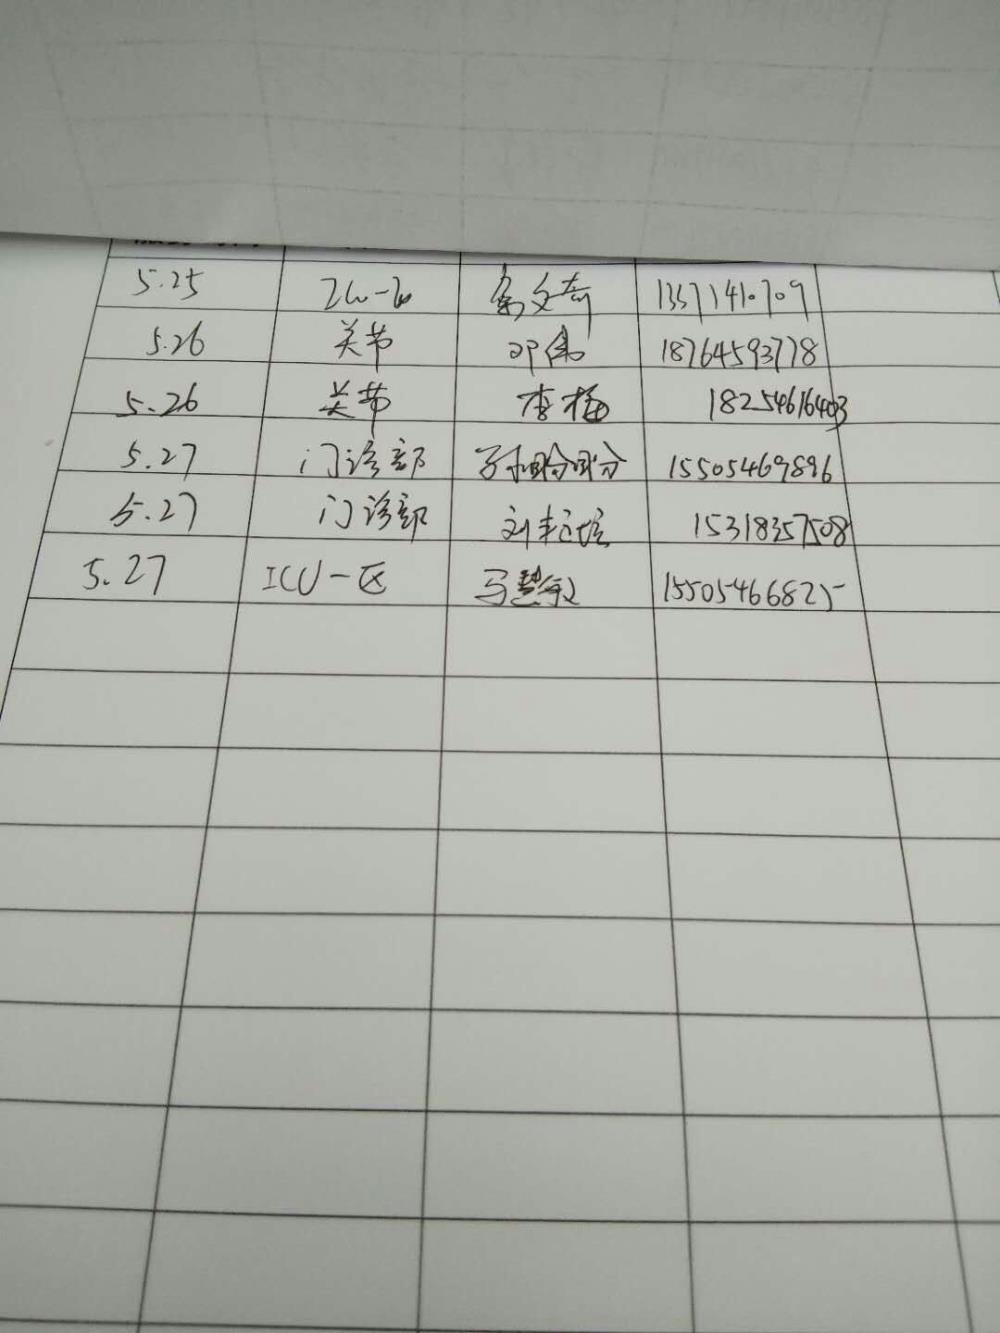 5.25 13571410709
5.26 关节 邓伟 18764593778
5.26 关节 李梅 18254616403
5.27 门诊部 孙盼盼 15505469896
5.27 门诊部 刘 15318357508
5.27 ICU一区 马慧敏 15505466825